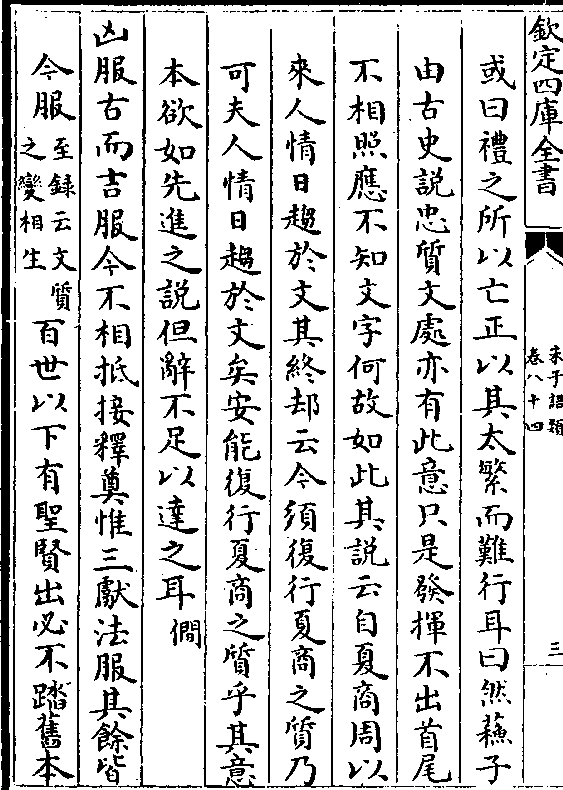 欽定四庫全書
朱子語類
卷八十四
三
或曰禮之所以亡正以其太繁而難行耳曰然蘇子
由古史說忠質文處亦有此意只是發揮不出首尾
不相照應不知文字何故如此其說云自夏商周以
來人情日趨於文其終却云今須復行夏商之質乃
可夫人情日趨於文矣安能復行夏商之質乎其意
本欲如先進之說但辭不足以達之耳僩
凶服古而吉服今不相抵接釋奠惟三獻法服其餘皆
今服至録云文質之變相生百世以下有聖賢出必不踏舊本